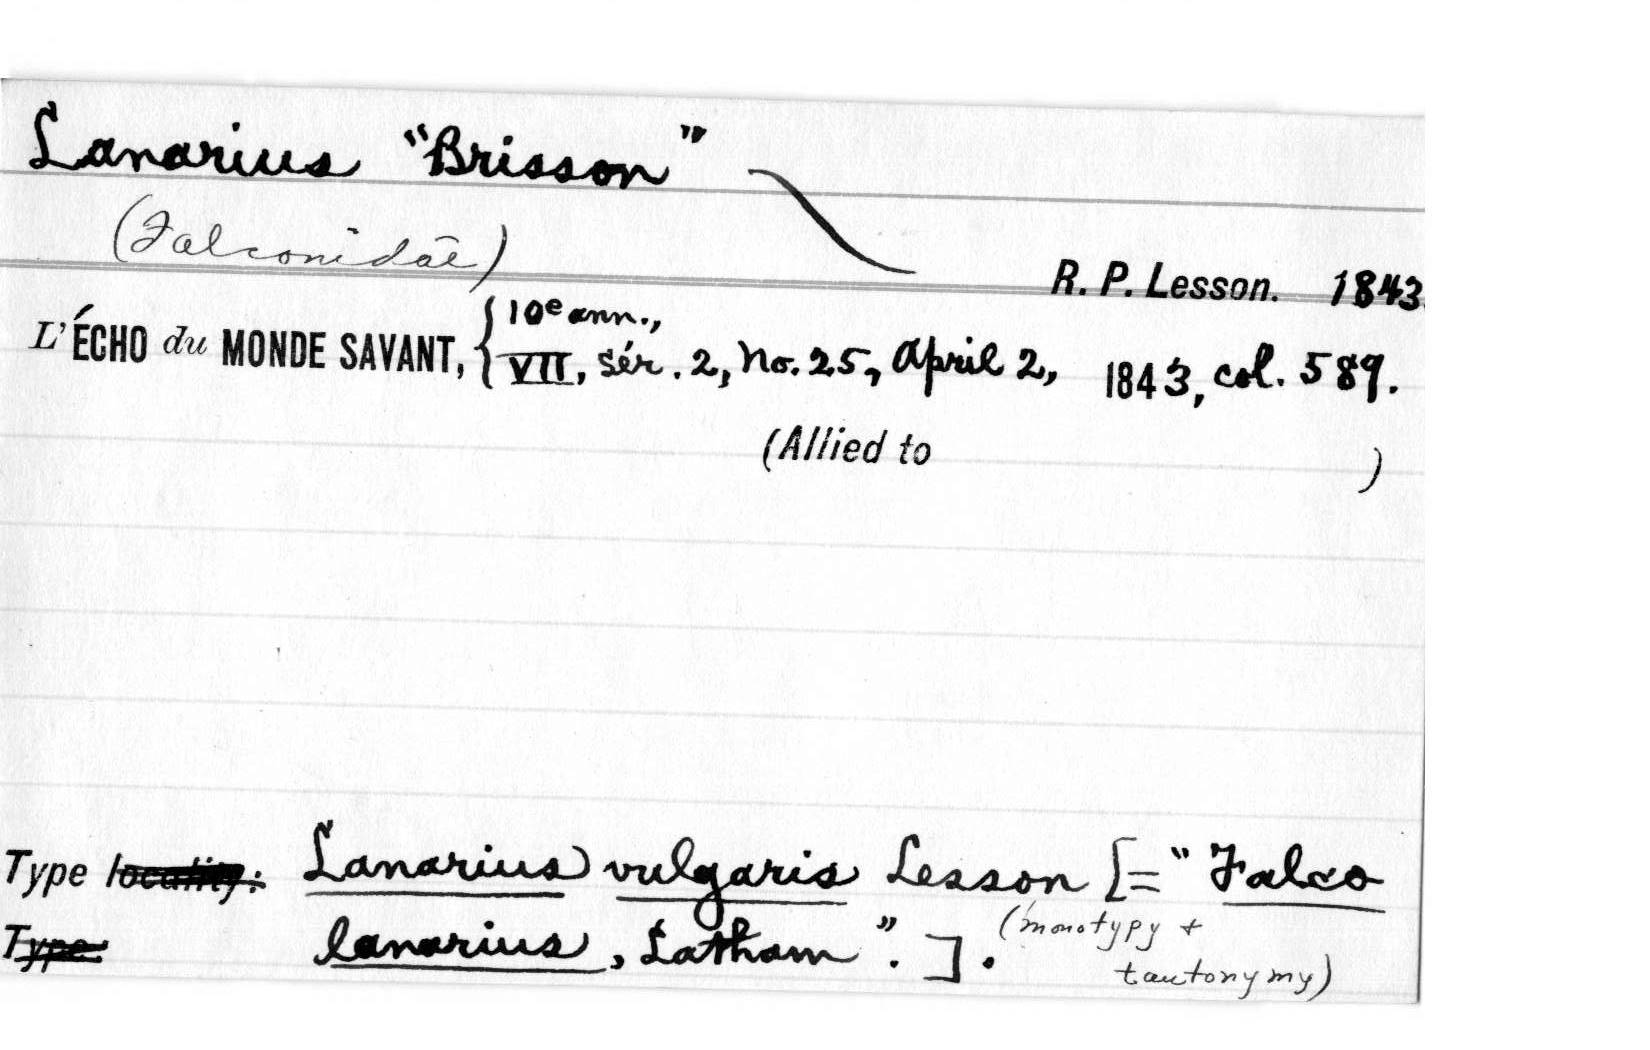 Lanarius "Brisson"
(Falconidae)
R. P. Lesson. 1843.
L'ÉCHO du MONDE SAVANT, { 10e ann.,
VII, Sér. 2, No. 25, April 2, 1843, col. 589.
(Allied to )
Type locality: Lanarius vulgaris Lesson [= "Falco
Type lanarius, Latham".]. (monotypy +
tautonymy)